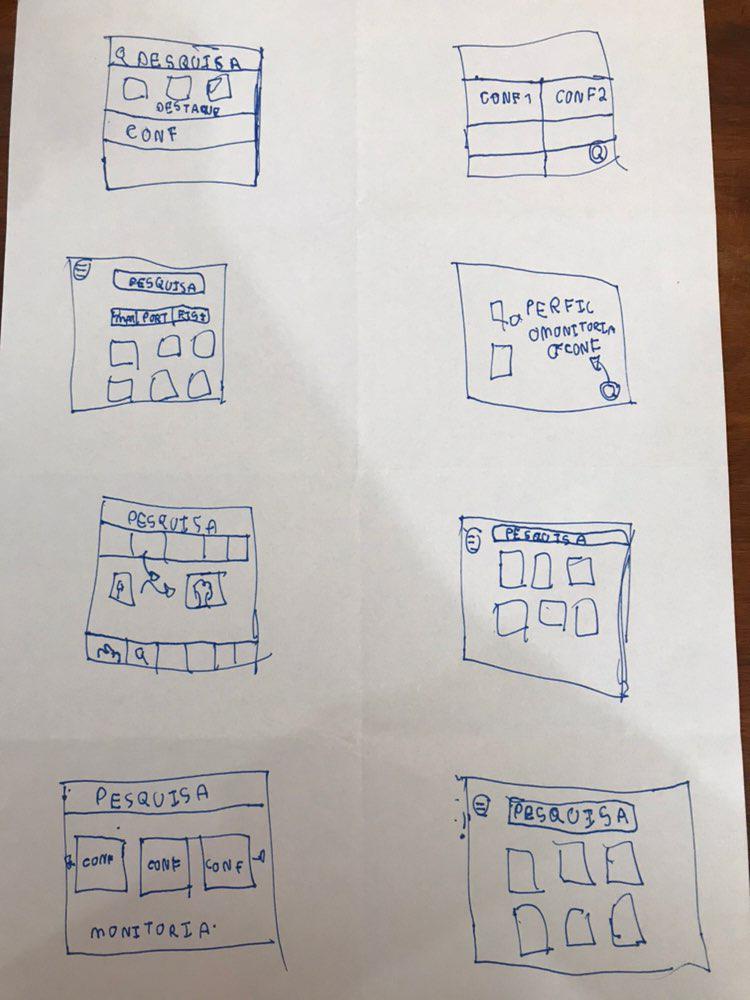 PESQUISA
DESTAQUE
CONF
CONF1 CONF2
PESQUISA
PORT
PERFIL
MONITORIA
CONF
PESQUISA
PESQUISA
PESQUISA
CONF CONF CONF
MONITORIA.
PESQUISA